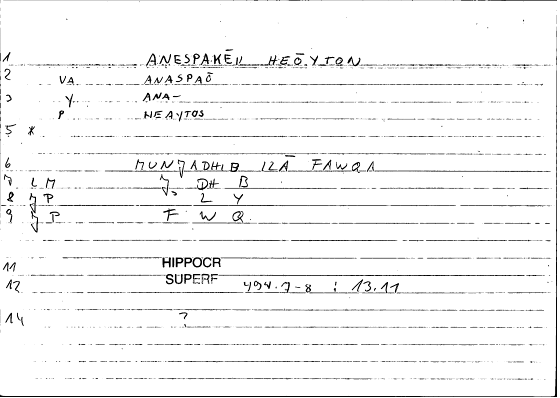 1 ANESPAKĒN HEŌYTON
2 VA ANASPAŌ
3 Y ANA-
P HEAYTOS
5 *
6 MUNJADHIB ILĀ FAWQA
7 L M J DH B
8 J P L Y
9 J P F W Q
11 HIPPOCR
12 SUPERF 494.7-8 : 13.11
14 ?